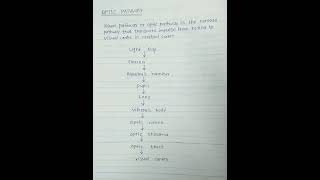 OPTIC PATHWAY
Visual pathway or optic pathway is the nervous
pathway that transmits impulse from retina to
visual centre in cerebral cortex
Light Rays
↓
Cornea
↓
Aqueous humour
↓
Pupil
↓
Lens
↓
Vitreous body
↓
Optic nerve
↓
Optic chiasma
↓
Optic tract
↓
Visual cortex